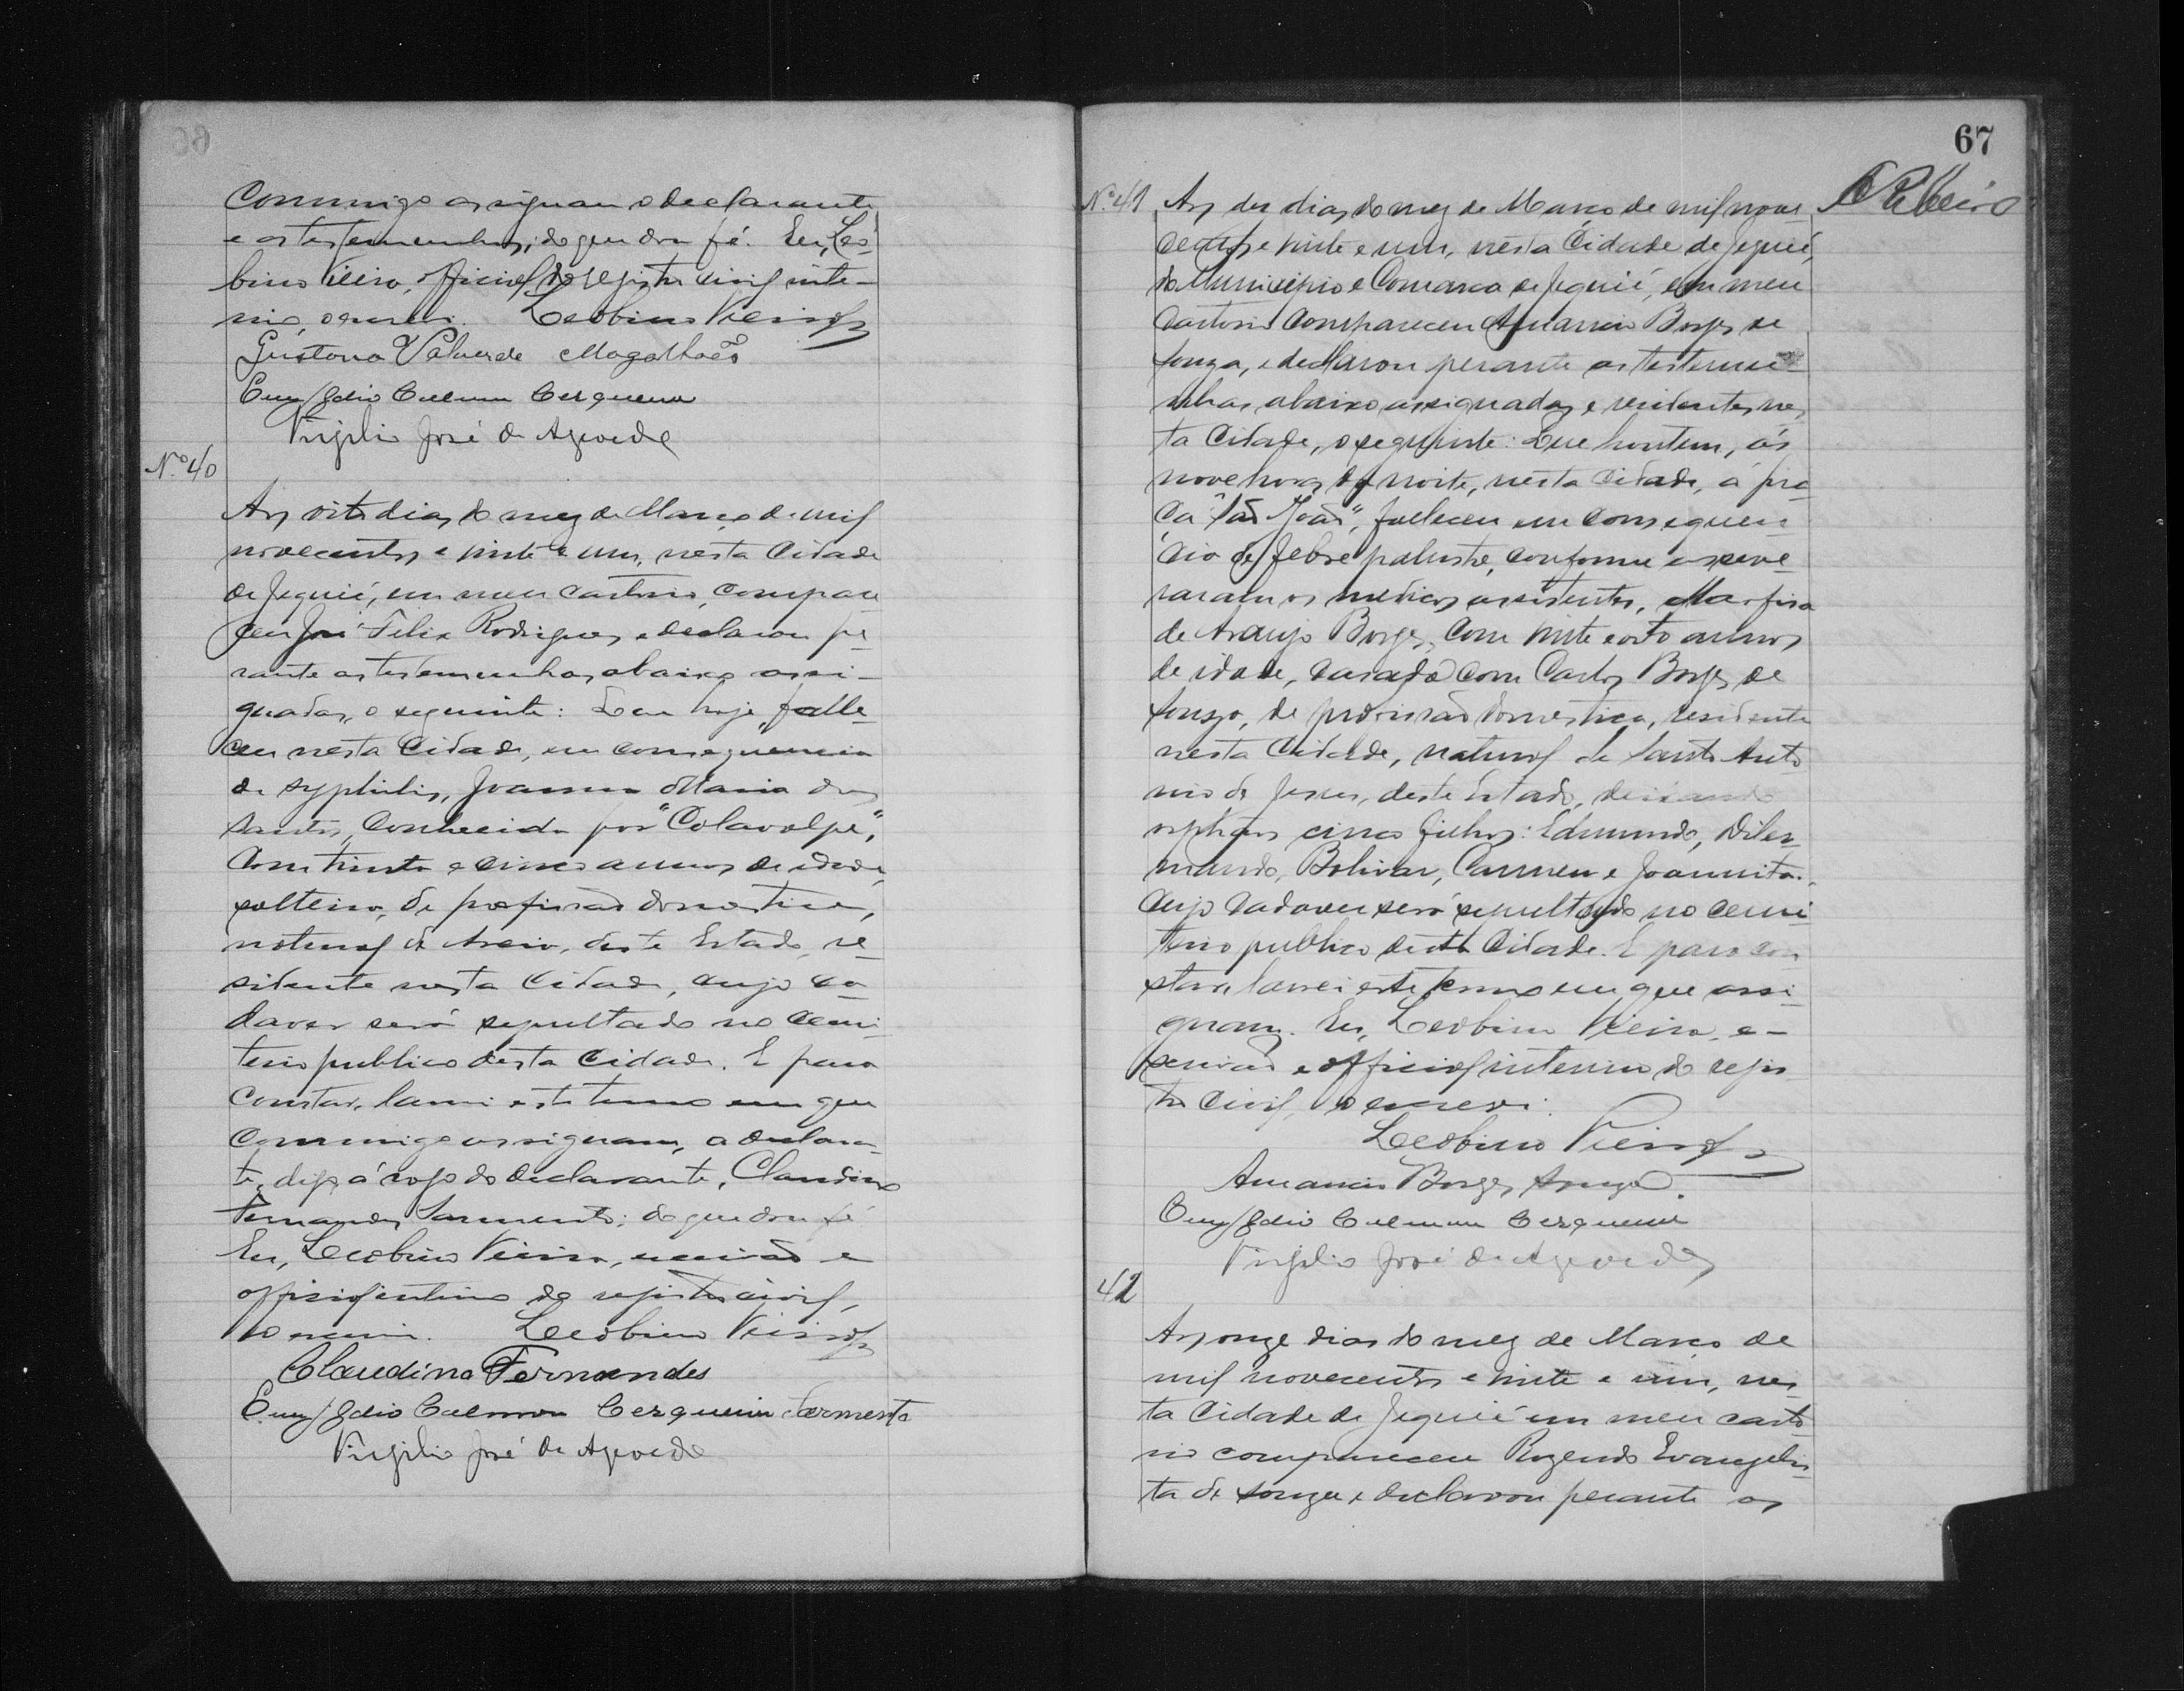 Commigo assignam o declarante
e as testemunhas; do que dou fé. Eu, Leo-
bino Vieira, official do registro civil inte-
rino, o escrevi. Leobino Vieira
Gustavo Valverde Magalhães
Emygdio Calmon Cerqueira
Virgilio José de Azevedo
Nº 40
Aos oito dias do mez de Março de mil
novecentos e vinte e um, nesta Cidade
de Jequié, em meu cartorio, compare-
ceu José Felix Rodrigues, e declarou pe-
rante as testemunhas abaixo assi-
gnadas, o seguinte: Que hoje, falle-
ceu nesta Cidade, em consequencia
de syphilis, Joanna Maria dos
Santos, Conhecida por "Colavolpe",
Com trinta e cinco annos de idade,
solteira, de profissão domestica,
natural de Areia, deste Estado, re-
sidente nesta Cidade, cujo ca-
daver será sepultado no cemi-
terio publico desta Cidade. E para
constar, lavrei este termo em que
commigo assignam, o declaran-
te, digo á rogo do declarante, Claudino
Fernandes Sarmento; do que dou fé
Eu, Leobino Vieira, escrivão e
official interino do registro civil,
o escrevi. Leobino Vieira
Claudino Fernandes
Emygdio Calmon Cerqueira Sarmento
Virgilio José de Azevedo
67
Ribeiro
Nº 41 Aos dez dias do mez de Março de mil nove
centos e vinte e um, nesta Cidade de Jequié,
do Municipio e Comarca de Jequié, em meu
Cartorio Compareceu Amancio Borges de
Souza, e declarou perante as testemu-
nhas abaixo assignadas e residentes nes-
ta Cidade, o seguinte: Que hontem, ás
nove horas da noite, nesta Cidade, á pra-
ça "São João", falleceu em consequen-
cia de febre palustre, conforme asseve-
raram os medicos assistentes, Marfisa
de Araujo Borges, Com vinte e oito annos
de idade, casada com Carlos Borges de
Souza, de profissão domestica, residente
nesta Cidade, natural de Santo Anto-
nio de Jesus, deste Estado, deixando
orphãos cinco filhos: Edmundo, Diler-
mando, Bolivar, Carmen e Joannita.
Cujo cadaver será sepultado no cemi-
terio publico desta Cidade. E para con-
star, lavrei este termo em que assi-
gnam. Eu, Leobino Vieira, es-
crivão e official interino do regis-
tro civil, o escrevi.
Leobino Vieira
Amancio Borges Souza.
Emygdio Calmon Cerqueira
Virgilio José de Azevedo
42
Aos onze dias do mez de Março de
mil novecentos e vinte e um, nes-
ta Cidade de Jequié em meu carto-
rio compareceu Rozendo Evangelis-
ta de Souza e declarou perante as